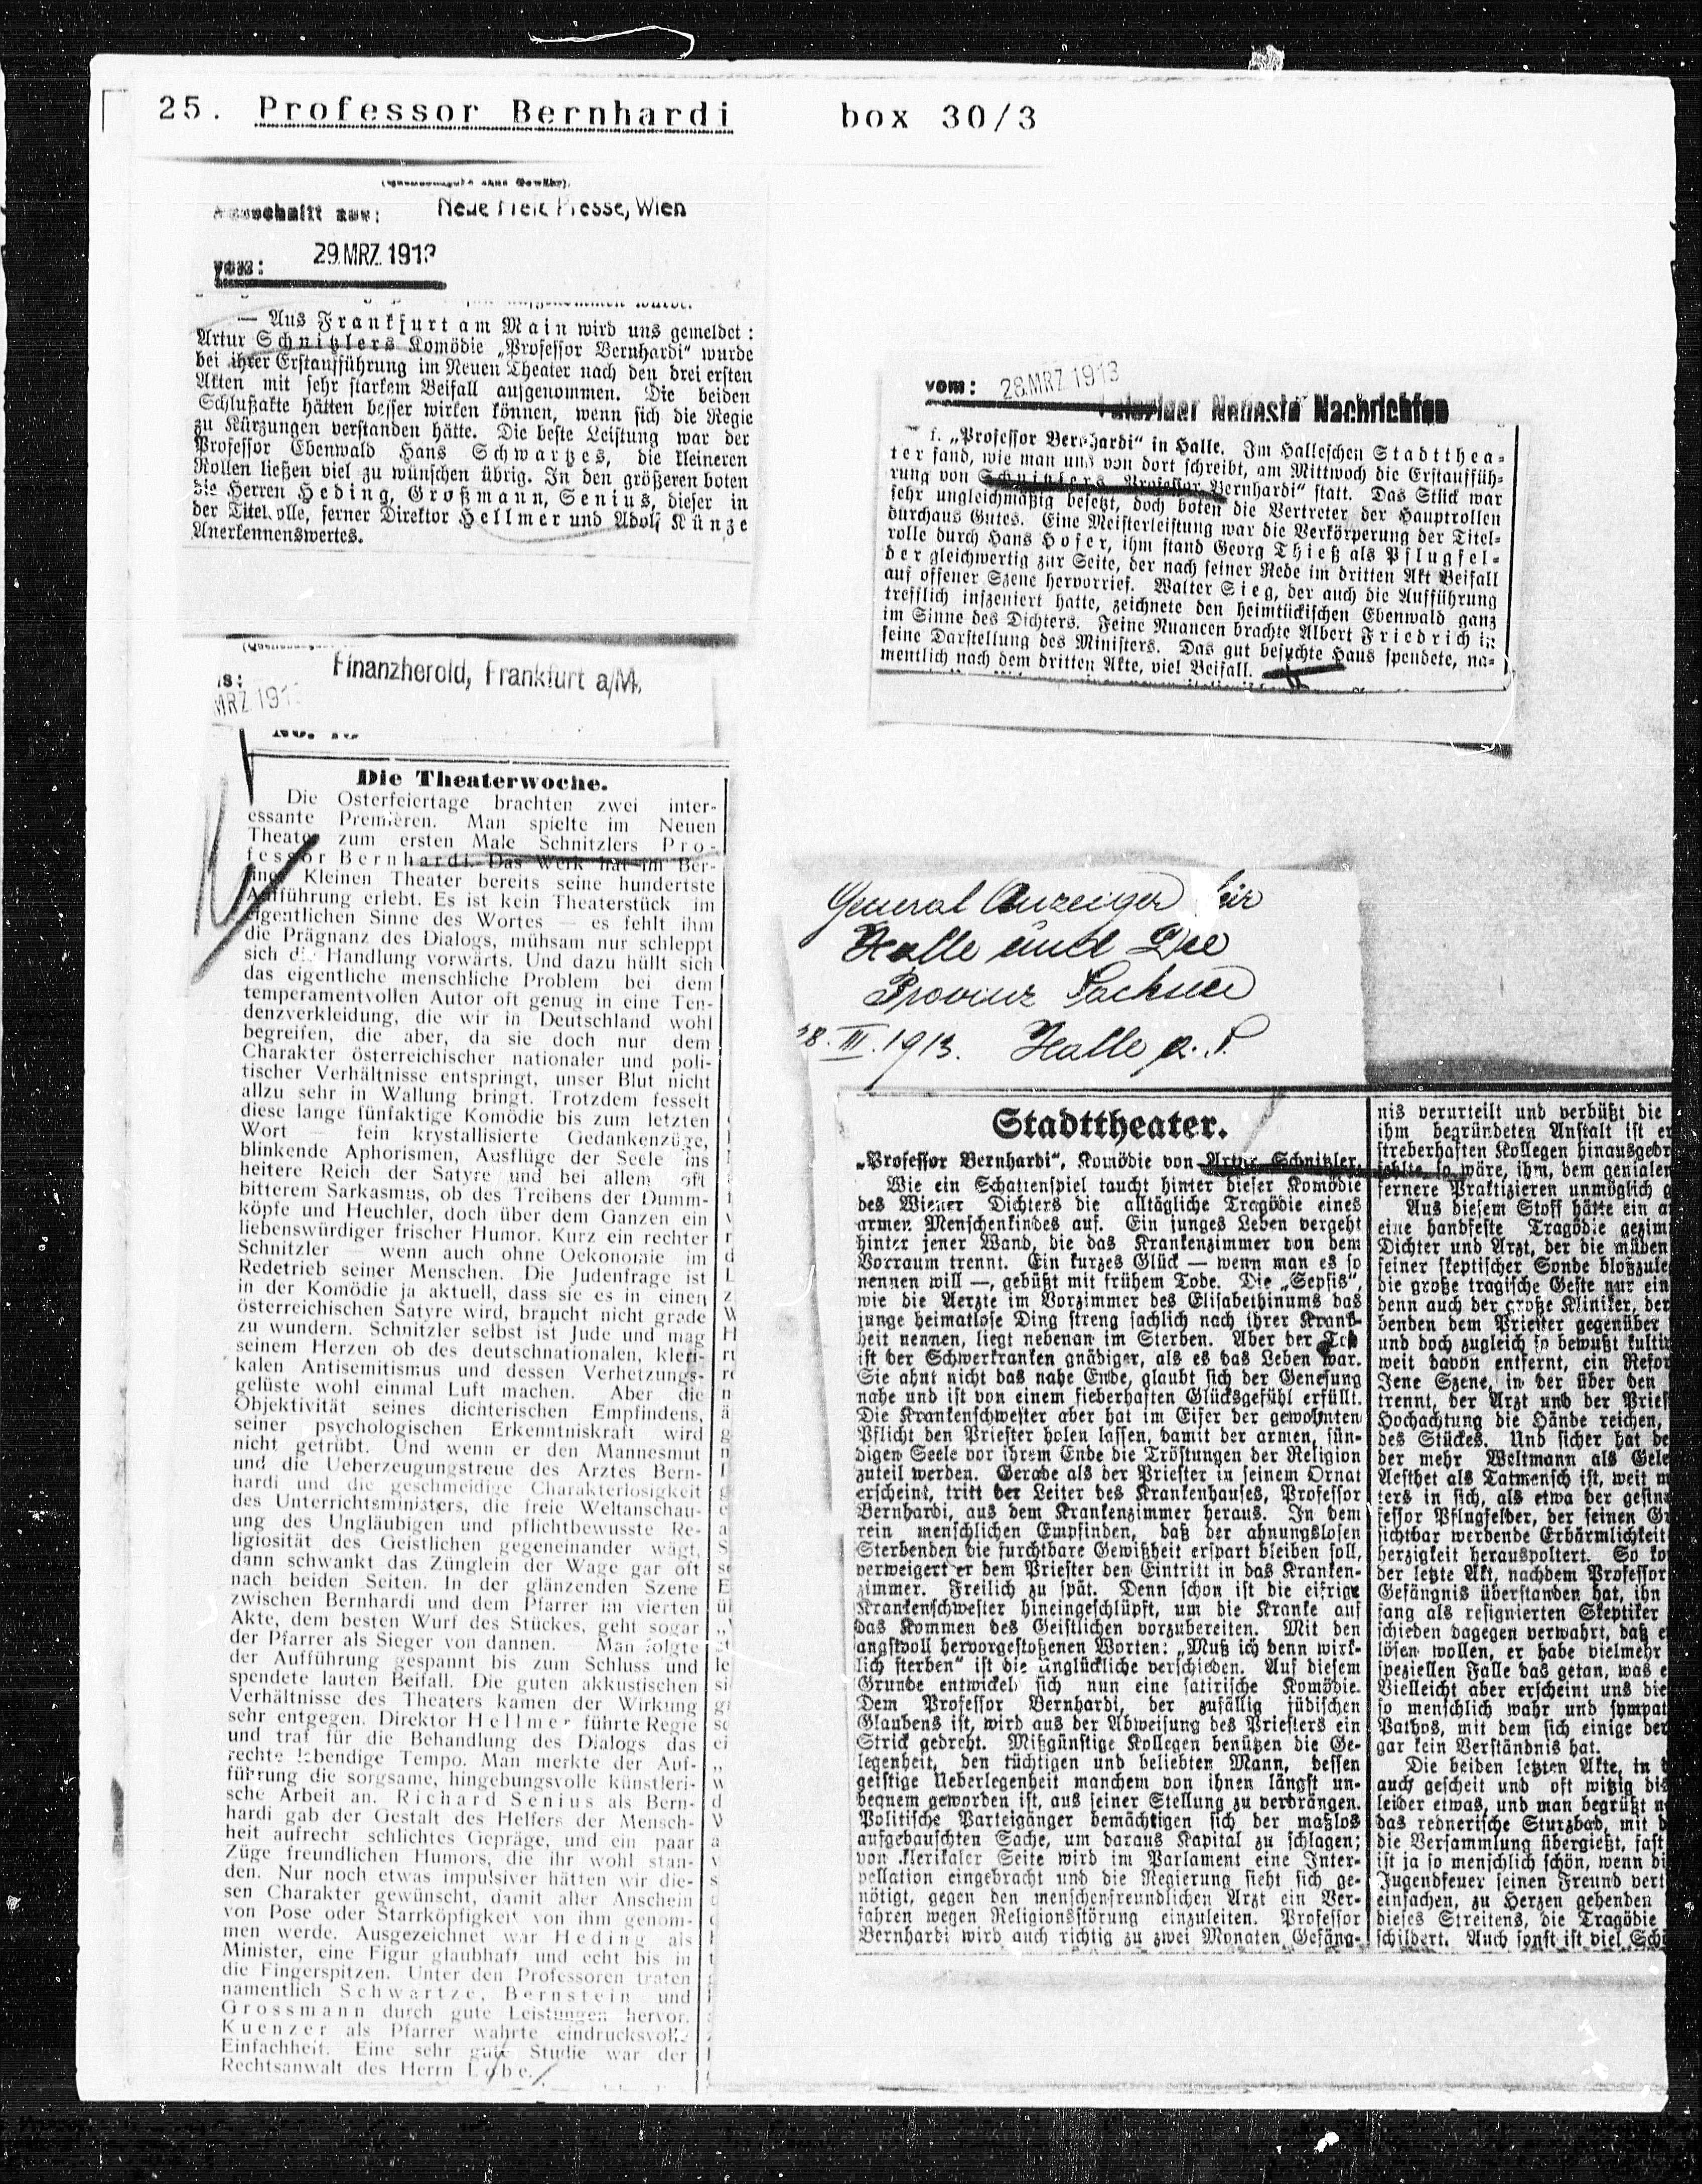 25. Professor Bernhardi box 30/3
Ausschnitt aus: Neue Freie Presse, Wien
vom: 29. MRZ. 1913
— Aus Frankfurt am Main wird uns gemeldet:
Artur Schnitzlers Komödie „Professor Bernhardi“ wurde
bei ihrer Erstaufführung im Neuen Theater nach den drei ersten
Akten mit sehr starkem Beifall aufgenommen. Die beiden
Schlußakte hätten besser wirken können, wenn sich die Regie
zu Kürzungen verstanden hätte. Die beste Leistung war der
Professor Ebenwald Hans Schwartzes, die kleineren
Rollen ließen viel zu wünschen übrig. In den größeren boten
die Herren Heding, Großmann, Senius, dieser in
der Titelrolle, ferner Direktor Hellmer und Adolf Künze
Anerkennenswertes.
Finanzherold, Frankfurt a/M.
MRZ 191
Die Theaterwoche.
Die Osterfeiertage brachten zwei inter-
essante Premièren. Man spielte im Neuen
Theater zum ersten Male Schnitzlers Pro-
fessor Bernhardi. Das Werk hat im Ber-
liner Kleinen Theater bereits seine hundertste
Aufführung erlebt. Es ist kein Theaterstück im
eigentlichen Sinne des Wortes — es fehlt ihm
die Prägnanz des Dialogs, mühsam nur schleppt
sich die Handlung vorwärts. Und dazu hüllt sich
das eigentliche menschliche Problem bei dem
temperamentvollen Autor oft genug in eine Ten-
denzverkleidung, die wir in Deutschland wohl
begreifen, die aber, da sie doch nur dem
Charakter österreichischer nationaler und poli-
tischer Verhältnisse entspringt, unser Blut nicht
allzu sehr in Wallung bringt. Trotzdem fesselt
diese lange fünfaktige Komödie bis zum letzten
Wort — fein krystallisierte Gedankenzüge,
blinkende Aphorismen, Ausflüge der Seele ins
heitere Reich der Satyre und bei allem oft
bitterem Sarkasmus, ob des Treibens der Dumm-
köpfe und Heuchler, doch über dem Ganzen ein
liebenswürdiger frischer Humor. Kurz ein rechter
Schnitzler — wenn auch ohne Oekonomie im
Redetrieb seiner Menschen. Die Judenfrage ist
in der Komödie ja aktuell, dass sie es in einer
österreichischen Satyre wird, braucht nicht grade
zu wundern. Schnitzler selbst ist Jude und mag
seinem Herzen ob des deutschnationalen, kleri-
kalen Antisemitismus und dessen Verhetzungs-
gelüste wohl einmal Luft machen. Aber die
Objektivität seines dichterischen Empfindens,
seiner psychologischen Erkenntniskraft wird
nicht getrübt. Und wenn er den Mannesmut
und die Ueberzeugungstreue des Arztes Bern-
hardi und die geschmeidige Charakterlosigkeit
des Unterrichtsministers, die freie Weltanschau-
ung des Ungläubigen und pflichtbewusste Re-
ligiosität des Geistlichen gegeneinander wägt,
dann schwankt das Zünglein der Wage gar oft
nach beiden Seiten. In der glänzenden Szene
zwischen Bernhardi und dem Pfarrer im vierten
Akte, dem besten Wurf des Stückes, geht sogar
der Pfarrer als Sieger von dannen. — Man folgte
der Aufführung gespannt bis zum Schluss und
spendete lauten Beifall. Die guten akkustischen
Verhältnisse des Theaters kamen der Wirkung
sehr entgegen. Direktor Hellmer führte Regie
und traf für die Behandlung des Dialogs das
rechte lebendige Tempo. Man merkte der Auf-
führung die sorgsame, hingebungsvolle künstleri-
sche Arbeit an. Richard Senius als Bern-
hardi gab der Gestalt des Helfers der Mensch-
heit aufrecht schlichtes Gepräge, und ein paar
Züge freundlichen Humors, die ihr wohl stan-
den. Nur noch etwas impulsiver hätten wir die-
sen Charakter gewünscht, damit aller Anschein
von Pose oder Starrköpfigkeit von ihm genom-
men werde. Ausgezeichnet war Heding als
Minister, eine Figur glaubhaft und echt bis in
die Fingerspitzen. Unter den Professoren traten
namentlich Schwartze, Bernstein und
Grossmann durch gute Leistungen hervor.
Kuenzer als Pfarrer wahrte eindrucksvolle
Einfachheit. Eine sehr gute Studie war der
Rechtsanwalt des Herrn Lobe.
vom: 28. MRZ 1913
Leipziger Neueste Nachrichten
f. „Professor Bernhardi“ in Halle. Im Halleschen Stadtthea-
ter fand, wie man uns von dort schreibt, am Mittwoch die Erstauffüh-
rung von Schnitzlers „Professor Bernhardi“ statt. Das Stück war
sehr ungleichmäßig besetzt, doch boten die Vertreter der Hauptrollen
durchaus Gutes. Eine Meisterleistung war die Verkörperung der Titel-
rolle durch Hans Hofer, ihm stand Georg Thieß als Pflugfel-
der gleichwertig zur Seite, der nach seiner Rede im dritten Akt Beifall
auf offener Szene hervorrief. Walter Sieg, der auch die Aufführung
trefflich inszeniert hatte, zeichnete den heimtückischen Ebenwald ganz
im Sinne des Dichters. Feine Nuancen brachte Albert Friedrich in
seine Darstellung des Ministers. Das gut besuchte Haus spendete, na-
mentlich nach dem dritten Akte, viel Beifall.
General Anzeiger für
Halle und Die
Provinz Sachsen
28. III. 1913. Halle a. S.
Stadttheater.
„Professor Bernhardi“, Komödie von Artur Schnitzler.
Wie ein Schattenspiel taucht hinter dieser Komödie
des Wiener Dichters die alltägliche Tragödie eines
armen Menschenkindes auf. Ein junges Leben vergeht
hinter jener Wand, die das Krankenzimmer von dem
Vorraum trennt. Ein kurzes Glück — wenn man es so
nennen will —, gebüßt mit frühem Tode. Die „Sepsis“,
wie die Aerzte im Vorzimmer des Elisabethinums das
junge heimatlose Ding streng sachlich nach ihrer Krank-
heit nennen, liegt nebenan im Sterben. Aber der Tod
ist der Schwerkranken gnädiger, als es das Leben war.
Sie ahnt nicht das nahe Ende, glaubt sich der Genesung
nahe und ist von einem fieberhaften Glücksgefühl erfüllt.
Die Krankenschwester aber hat im Eifer der gewohnten
Pflicht den Priester holen lassen, damit der armen, sün-
digen Seele vor ihrem Ende die Tröstungen der Religion
zuteil werden. Gerade als der Priester in seinem Ornat
erscheint, tritt der Leiter des Krankenhauses, Professor
Bernhardi, aus dem Krankenzimmer heraus. In dem
rein menschlichen Empfinden, daß der ahnungslosen
Sterbenden die furchtbare Gewißheit erspart bleiben soll,
verweigert er dem Priester den Eintritt in das Kranken-
zimmer. Freilich zu spät. Denn schon ist die eifrige
Krankenschwester hineingeschlüpft, um die Kranke auf
das Kommen des Geistlichen vorzubereiten. Mit den
angstvoll hervorgestoßenen Worten: „Muß ich denn wirk-
lich sterben“ ist die unglückliche verschieden. Auf diesem
Grunde entwickelt sich nun eine satirische Komödie.
Dem Professor Bernhardi, der zufällig jüdischen
Glaubens ist, wird aus der Abweisung des Priesters ein
Strick gedreht. Mißgünstige Kollegen benützen die Ge-
legenheit, den tüchtigen und beliebten Mann, dessen
geistige Ueberlegenheit manchem von ihnen längst un-
bequem geworden ist, aus seiner Stellung zu verdrängen.
Politische Parteigänger bemächtigen sich der maßlos
aufgebauschten Sache, um daraus Kapital zu schlagen;
von klerikaler Seite wird im Parlament eine Inter-
pellation eingebracht und die Regierung sieht sich ge-
nötigt, gegen den menschenfreundlichen Arzt ein Ver-
fahren wegen Religionsstörung einzuleiten. Professor
Bernhardi wird auch richtig zu zwei Monaten Gefäng-
nis verurteilt und verbüßt die
ihm begründeten Anstalt ist er
streberhaften Kollegen hinausgebr
fehlte so wäre, ihm, dem genialen
fernere Praktizieren unmöglich g
Aus diesem Stoff hätte ein a
eine handfeste Tragödie gezim
Dichter und Arzt, der die müden
seiner skeptischer Sonde bloßzule
die große tragische Geste nur ein
denn auch der große Kliniker, der
benden dem Priester gegenüber
und doch zugleich so bewußt kulti
weit davon entfernt, ein Refor
Jene Szene, in der über den
trennt, der Arzt und der Pries
Hochachtung die Hände reichen,
des Stückes. Und sicher hat de
der mehr Weltmann als Gele
Aesthet als Tatmensch ist, weit m
ters in sich, als etwa der gesin
fessor Pflugfelder, der seinen Gr
sichtbar werdende Erbärmlichkeit
herzigkeit herauspoltert. So ko
der letzte Akt, nachdem Professor
Gefängnis überstanden hat, ihn
fang als resignierten Skeptiker
schieden dagegen verwahrt, daß e
lösen wollen, er habe vielmehr
speziellen Falle das getan, was e
Vielleicht aber erscheint uns die
so menschlich wahr und sympat
Pathos, mit dem sich einige der
gar kein Verständnis hat.
Die beiden letzten Akte, in
auch gescheit und oft witzig dis
leider etwas, und man begrüßt
das rednerische Sturzbad, mit d
die Versammlung übergießt, fast
ist ja so menschlich schön, wenn di
Jugendfeuer seinen Freund vert
einfachen, zu Herzen gehenden
dieses Streitens, die Tragödie
schildert. Auch sonst ist viel